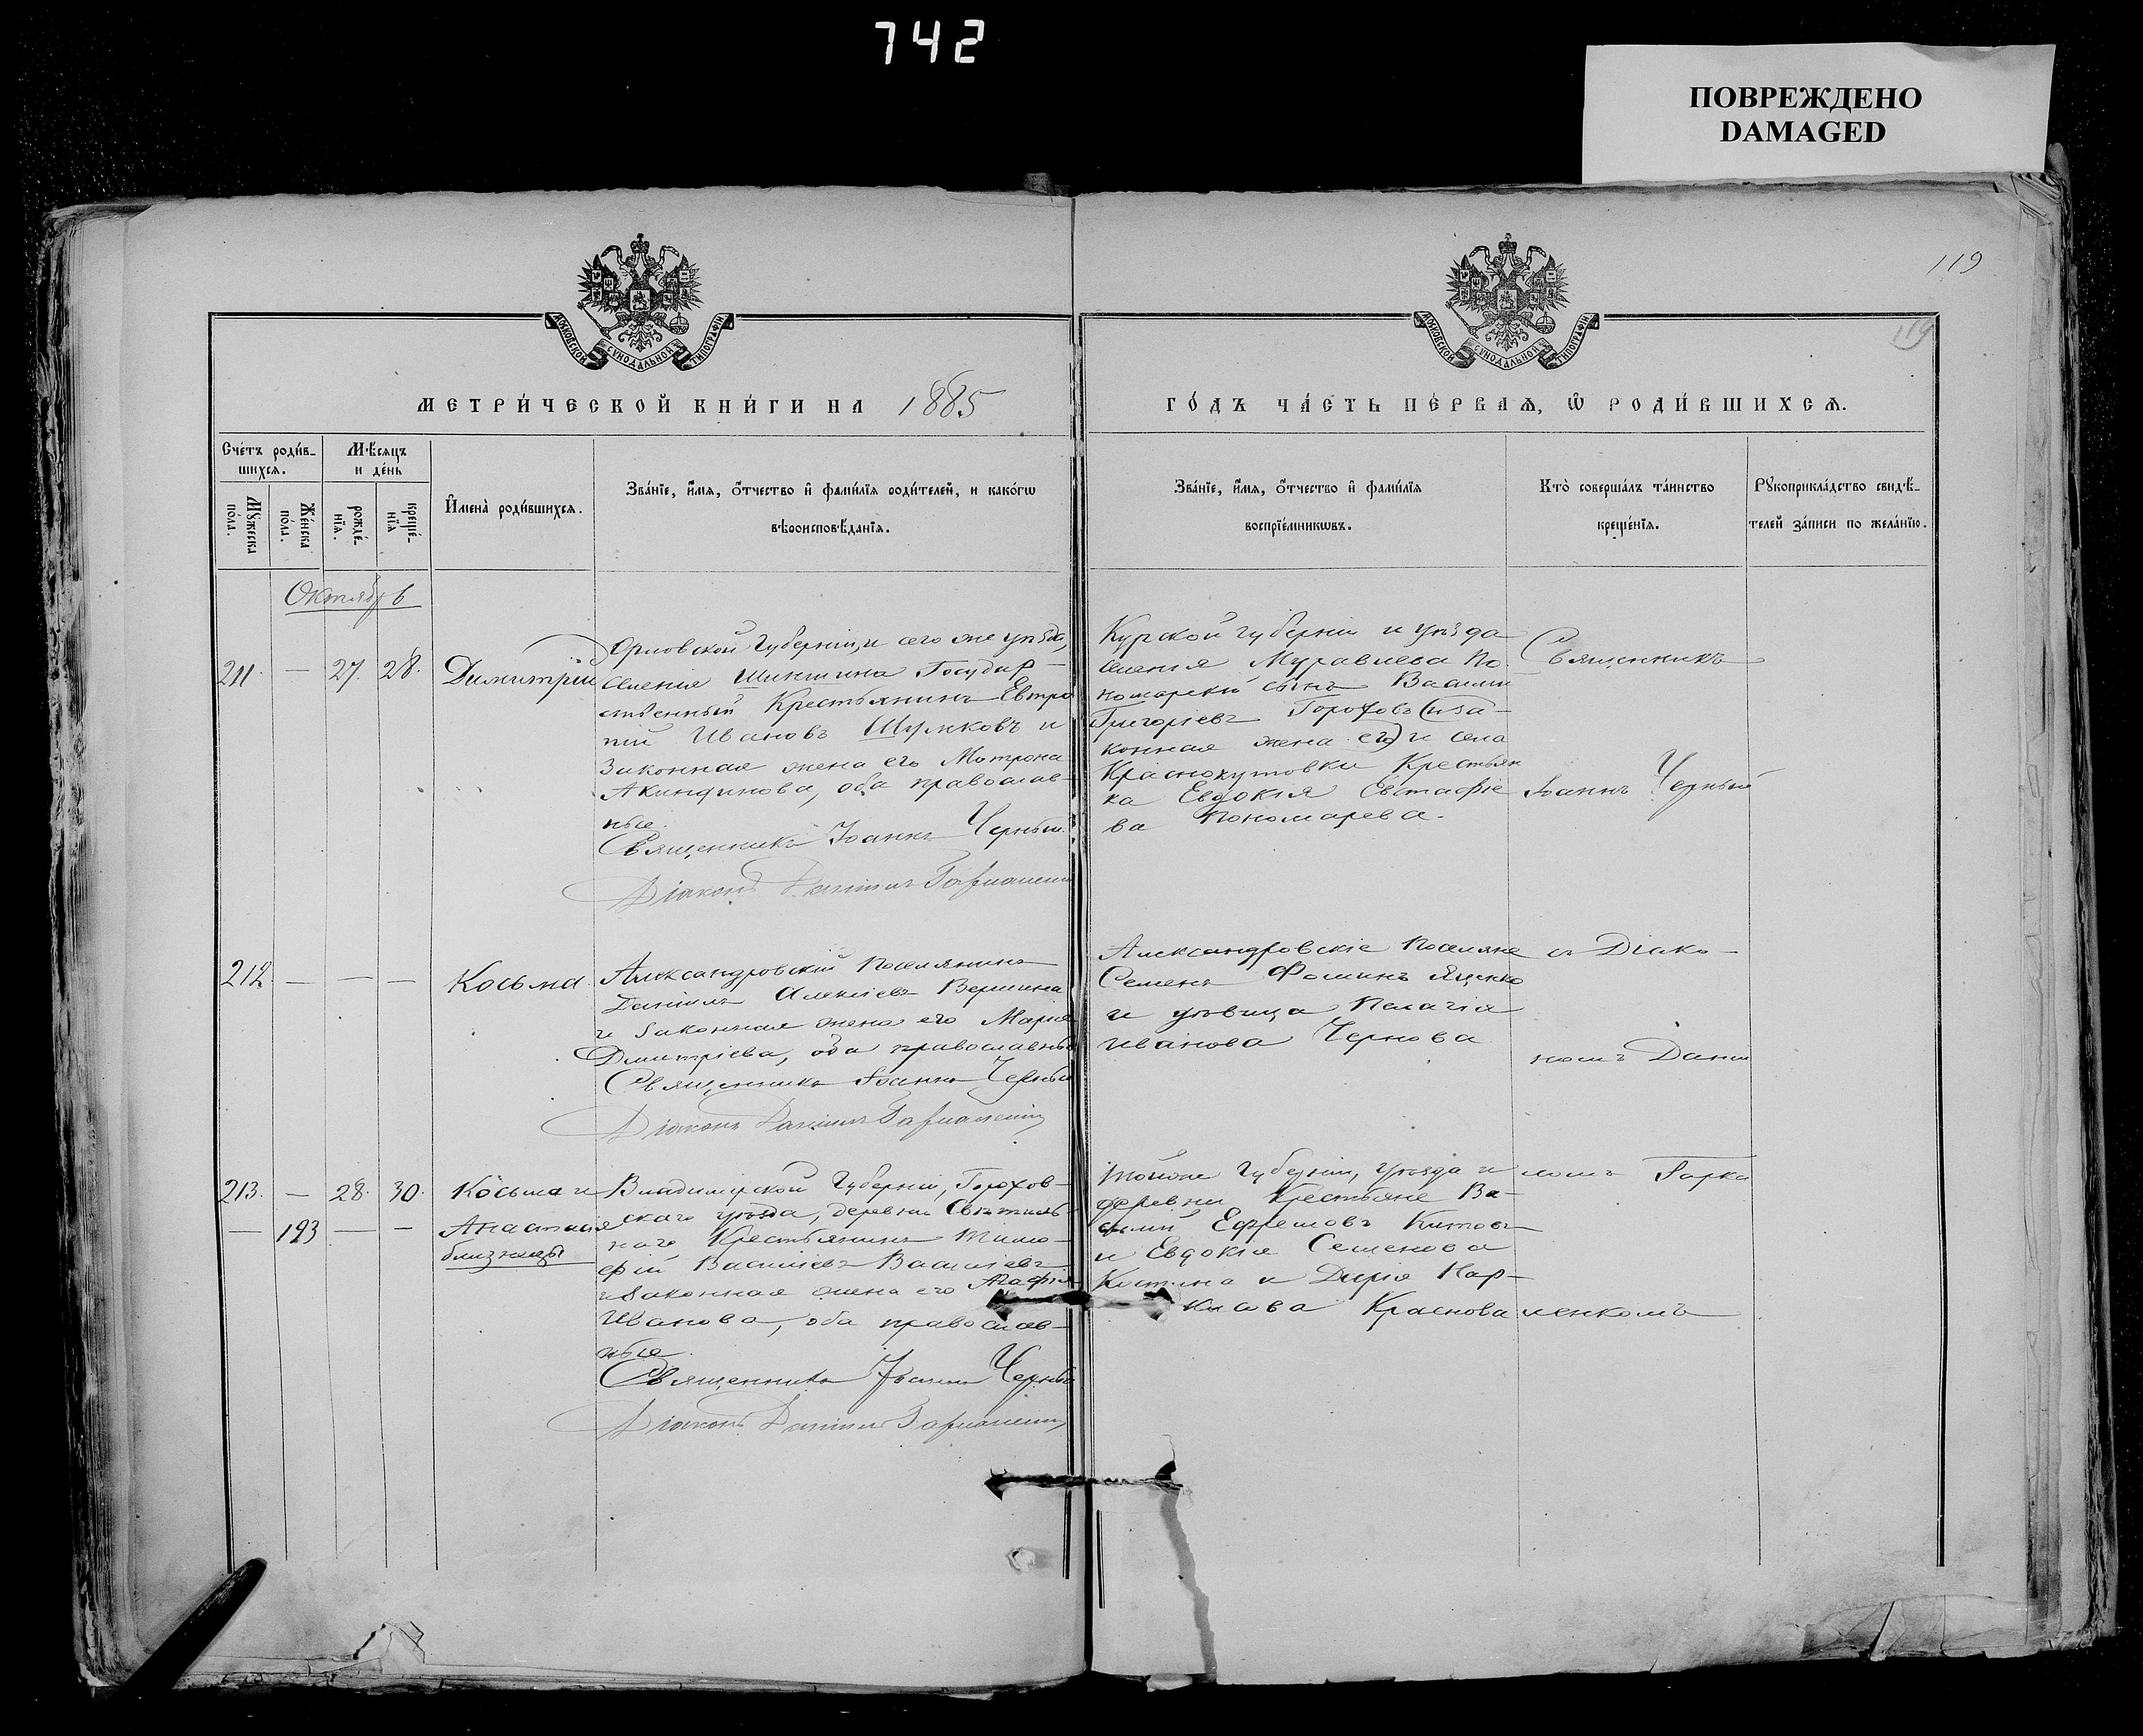 742
ПОВРЕЖДЕНО
DAMAGED
119
119
МОСКОВСКОЙ СѴНОДАЛЬНОЙ ТИПОГРАФІИ
МОСКОВСКОЙ СѴНОДАЛЬНОЙ ТИПОГРАФІИ
МЕТРИ́ЧЕСКОЙ КНИ́ГИ НА 1885
ГО́ДЪ ЧА́СТЬ ПЕ́РВАѦ, Ѡ҆ РОДИ́ВШИХСѦ.
Сче́тъ роди́в-
шихсѧ.
Мꙋ́жеска по́ла.
Же́нска по́ла.
Мѣ́сѧцъ
и де́нь
рожде́-
нїѧ.
креще́-
нїѧ
И҆мена̀ роди́вшихсѧ.
Зва́нїе, и҆́мѧ, ѻ҆́тчество и҆ фами́лїѧ роди́телей, и како́гѡ
вѣроисповѣ́данїѧ.
Зва́нїе, и҆́мѧ, ѻ҆́тчество и҆ фами́лїѧ
воспрїе́мникѡвъ.
Кто̀ соверша́лъ та́инство
креще́нїѧ.
Рꙋкоприкла́дство свидѣ́-
телей за́писи по жела́нїю.
Октябрь
211. — 27. 28. Димитрій
Орловской Губерніи, и сего же уѣзда,
селенія Шиншина Государ-
ственный Крестьянинъ Евтро
пій Ивановъ Шумковъ и
Законная жена его Матрона
Акиндинова, оба православ-
ные.
Священникъ Іоаннъ Черный.
Діаконъ Даніилъ
Курской губерніи и уѣзда
селенія Муравлева По-
номарскій сынъ Василій
Григоріевъ Гороховъ (и за-
конная жена его) и села
Краснокутовки Крестьян
ка Евдокія Евстафіе
ва Пономарева.
Священникъ
Іоаннъ Черный
212. — — — Косьма.
Александровскій Поселянинъ
Даніилъ Алексіевъ Вершина
и Законная жена его Марія
Дмитріева, оба православны
Священникъ Іоаннъ Черный
Діаконъ Даніилъ
Александровскіе Поселяне
Семенъ Фоминъ Яценко
и дѣвица Пелагія
Иванова Чернова
съ Діако-
номъ Дани
213. — 28. 30. Косьма и
— 193 — — Анастасія
близнецы
Владимірской Губерніи, Горохов-
скаго уѣзда, деревни Свѣтиль-
наго Крестьянинъ Тимо-
фій Василіевъ Василіевъ
и Законная жена его Агафія
Иванова, оба православ-
ные.
Священникъ Іоаннъ Черный
Діаконъ Даніилъ
Тойже Губерніи, уѣзда и
деревни Крестьяне Ва-
силій Ефремовъ Китовъ
и Евдокія Семенова
Костина и Дарія Кар-
Краснова
ломъ Гарма
ленкомъ